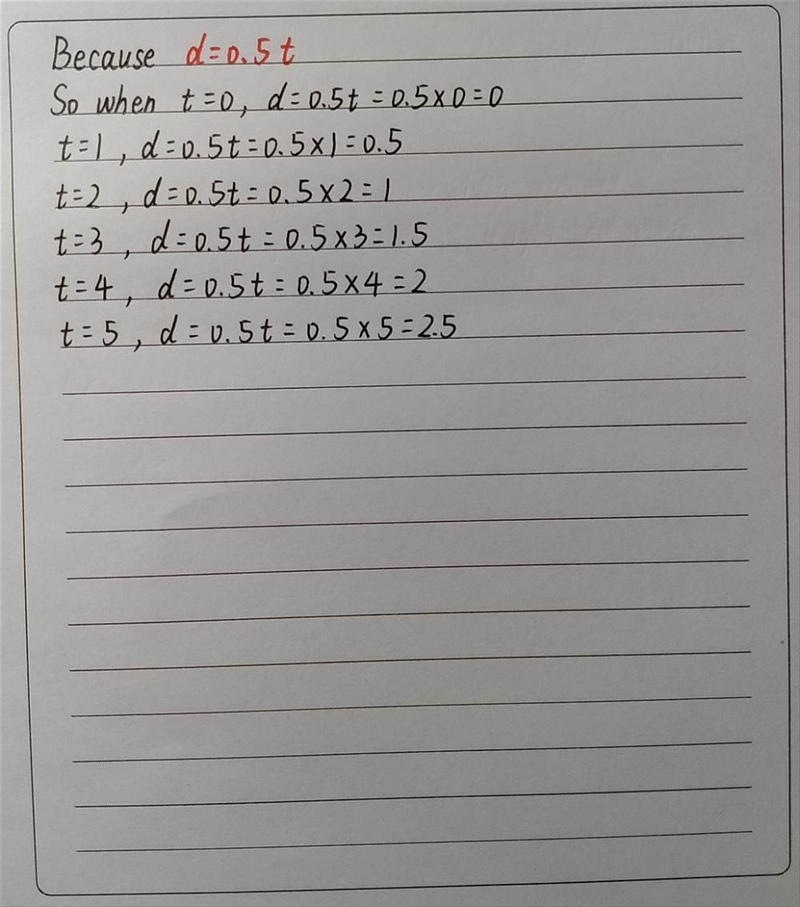 Because d=0.5t
So when t=0, d=0.5t=0.5×0=0
t=1, d=0.5t=0.5×1=0.5
t=2, d=0.5t=0.5×2=1
t=3, d=0.5t=0.5×3=1.5
t=4, d=0.5t=0.5×4=2
t=5, d=0.5t=0.5×5=2.5